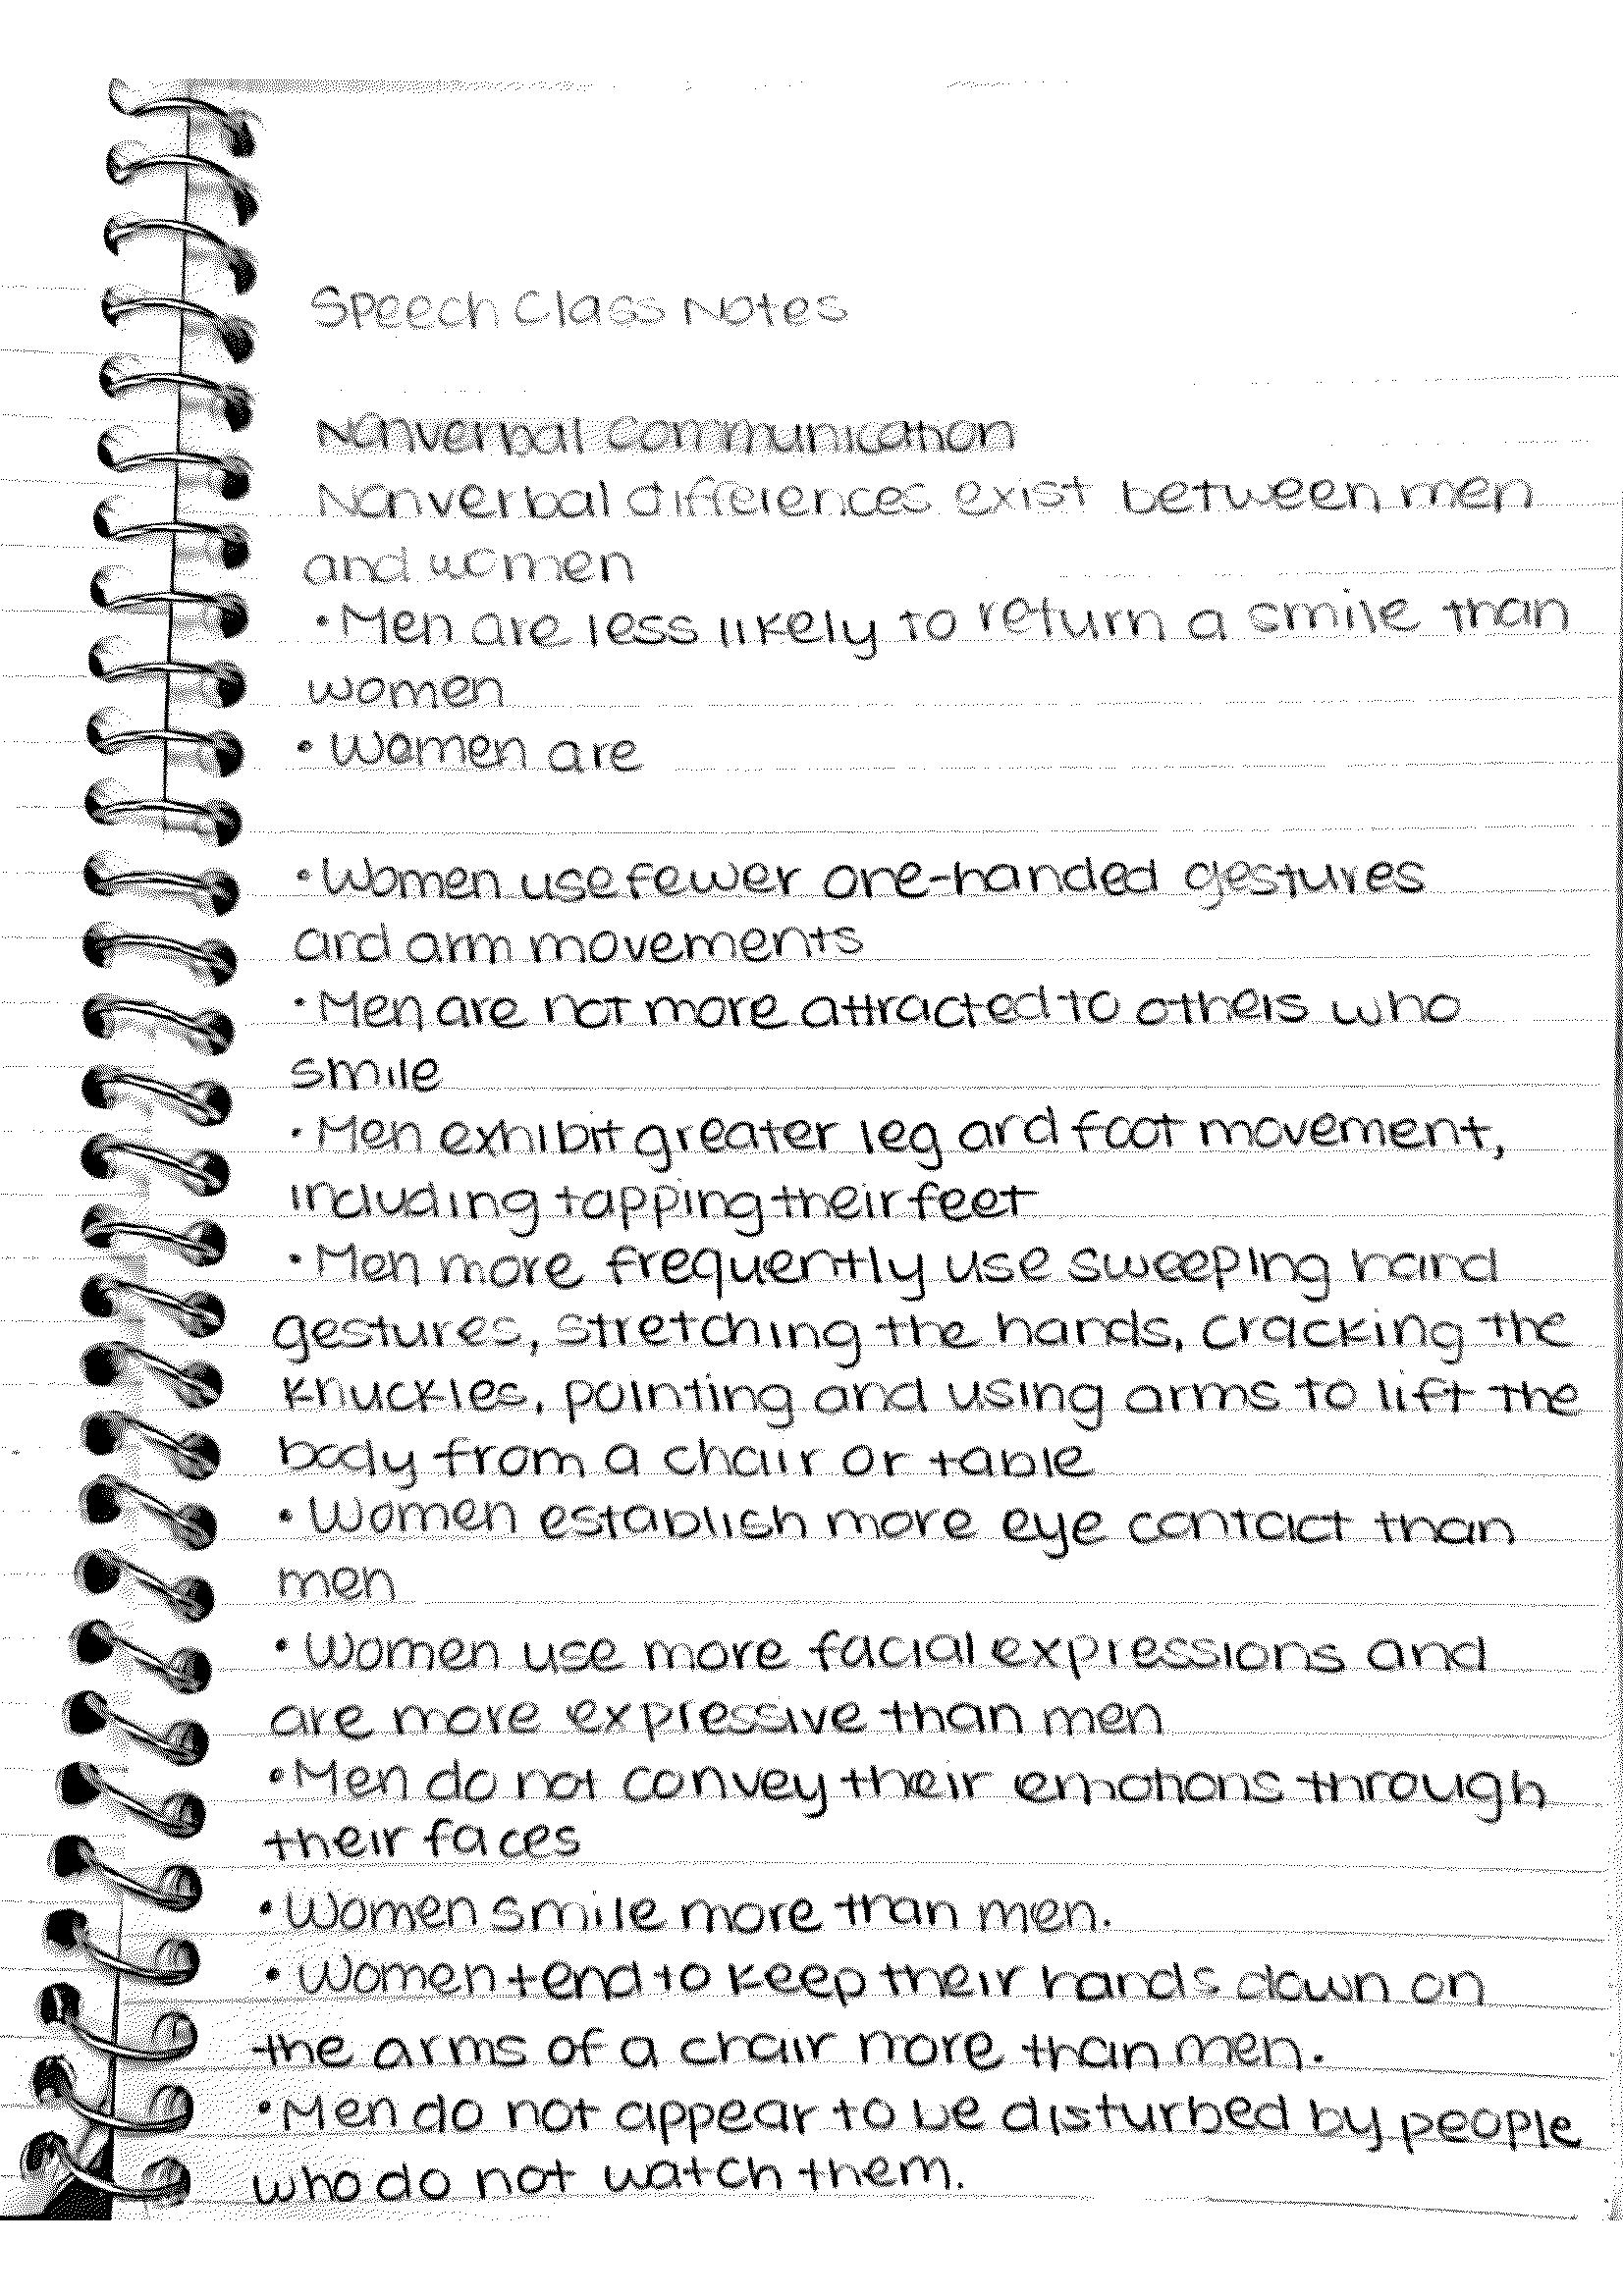 Speech Class Notes
Nonverbal communication
Nonverbal differences exist between men
and women
• Men are less likely to return a smile than
women
• Women are
• Women use fewer one-handed gestures
and arm movements
• Men are not more attracted to others who
smile
• Men exhibit greater leg and foot movement,
including tapping their feet
• Men more frequently use sweeping hand
gestures, stretching the hands, cracking the
knuckles, pointing and using arms to lift the
body from a chair or table
• Women establish more eye contact than
men
• Women use more facial expressions and
are more expressive than men
• Men do not convey their emotions through
their faces
• Women smile more than men.
• Women tend to keep their hands down on
the arms of a chair more than men.
• Men do not appear to be disturbed by people
who do not watch them.